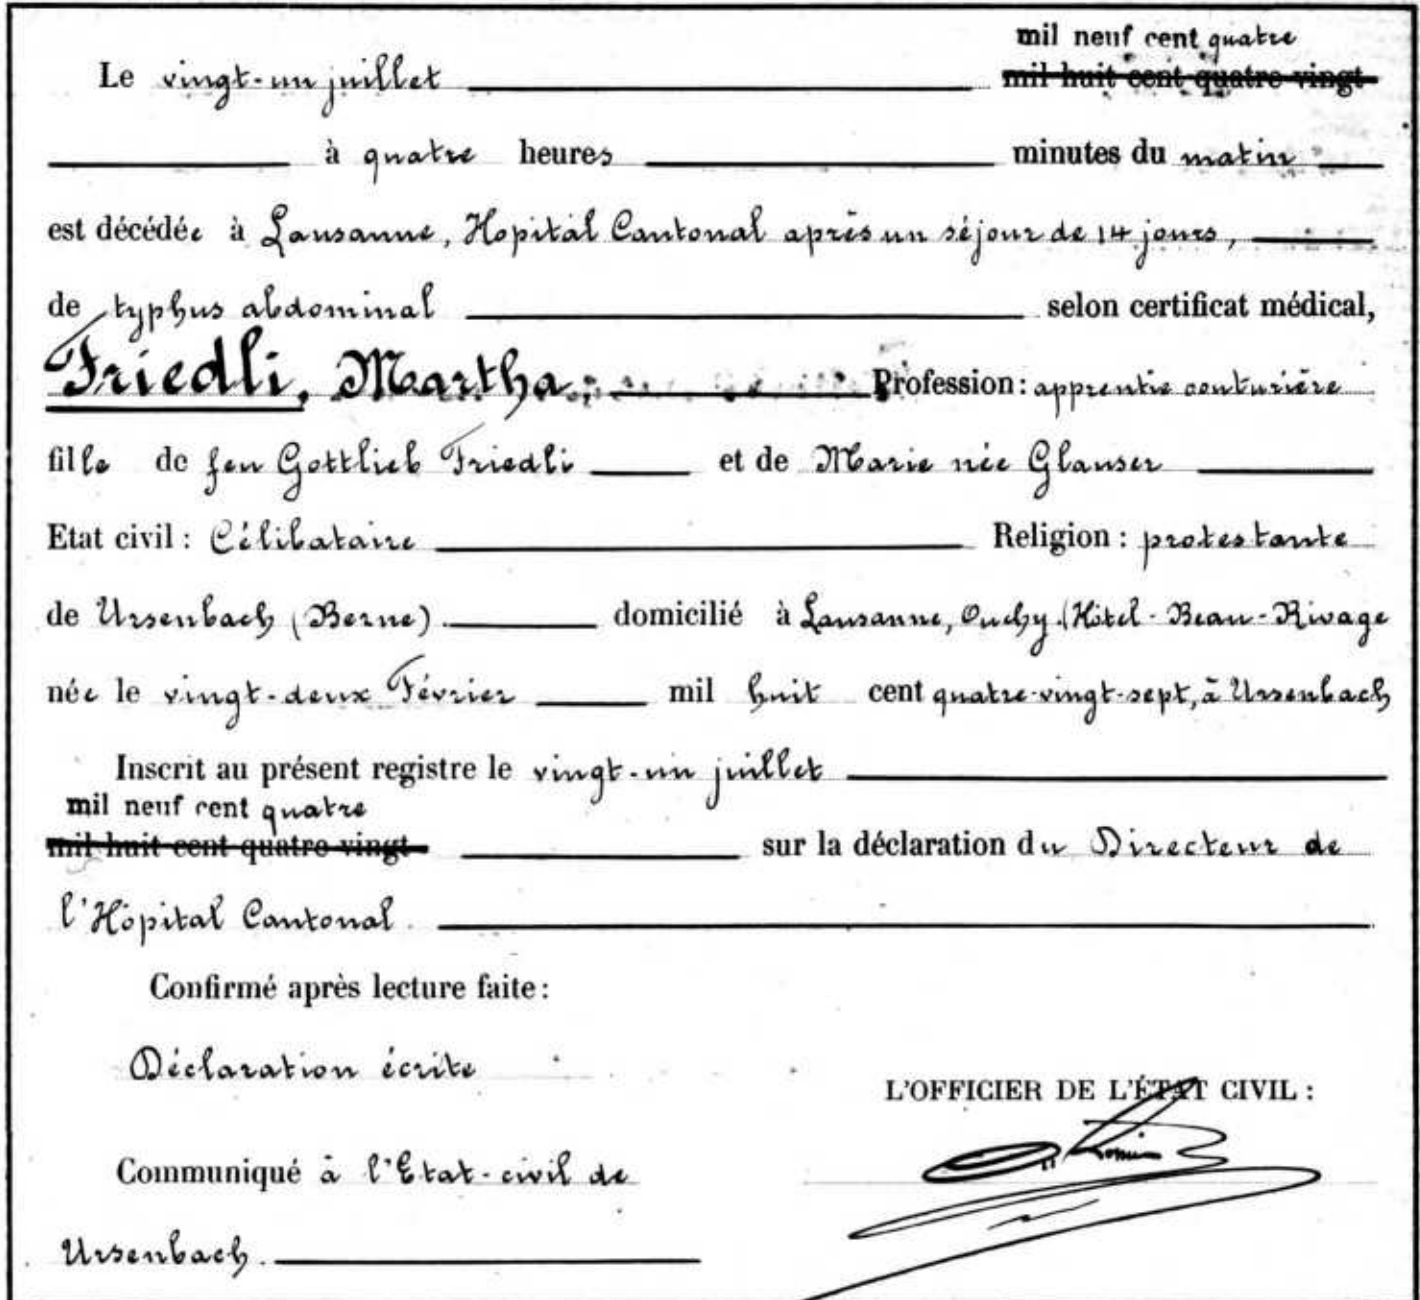 mil neuf cent quatre
Le vingt-un juillet mil huit cent quatre-vingt
à quatre heures minutes du matin
est décédée à Lausanne, Hopital Cantonal après un séjour de 14 jours,
de typhus abdominal selon certificat médical,
Friedli, Martha, Profession: apprentie couturière
fille de feu Gottlieb Friedli et de Marie née Glauser
Etat civil: Célibataire Religion: protestante
de Ursenbach (Berne) domicilié à Lausanne, Ouchy (Hôtel-Beau-Rivage
née le vingt-deux Février mil huit cent quatre-vingt-sept, à Ursenbach
Inscrit au présent registre le vingt-un juillet
mil neuf cent quatre
mil huit cent quatre-vingt sur la déclaration du Directeur de
l'Hôpital Cantonal
Confirmé après lecture faite:
Déclaration écrite
L'OFFICIER DE L'ÉTAT CIVIL:
Communiqué à l'Etat-civil de
Ursenbach.